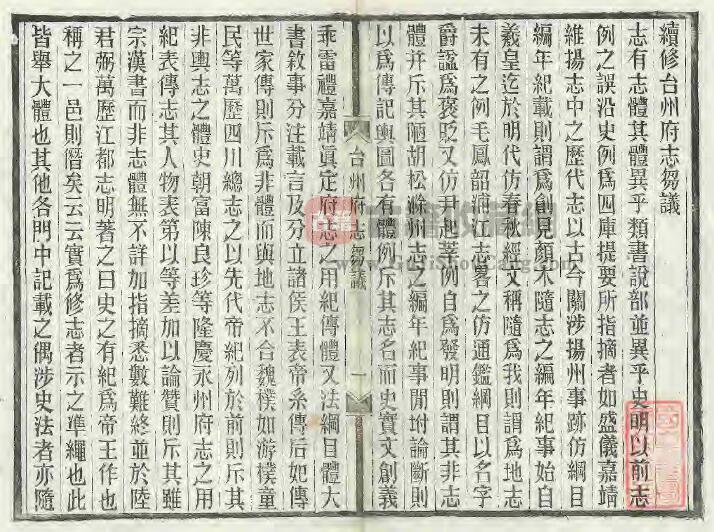 續修台州府志芻議
志有志體其體異乎類書說部並異乎史明以前志
例之誤沿史例爲四庫提要所指摘者如盛儀嘉靖
維揚志中之歷代志以古今關涉揚州事跡仿綱目
編年紀載則謂爲創見顏木隨志之編年紀事始自
羲皇迄於明代仿春秋經文稱隨爲我則謂爲地志
未有之例毛鳳韶浦江志畧之仿通鑑綱目以名字
爵謚爲褒貶又仿尹起莘例自爲發明則謂其非志
體并斥其陋胡松滁州志之編年紀事閒坿論斷則
以爲傳記輿圖各有體例斥其志名而史實文創義
乖雷禮嘉靖眞定府志之用紀傳體又法綱目體大
書敘事分注載言及分立諸侯王表帝系傳后妃傳
世家傳則斥爲非體而與地志不合魏樸如游樸童
民等萬歷四川總志之以先代帝紀列於前則斥其
非輿志之體史朝富陳良珍等隆慶永州府志之用
紀表傳志其人物表第以等差加以論贊則斥其雖
宗漢書而非志體無不詳加指摘悉數難終並於陸
君弼萬歷江都志明著之曰史之有紀爲帝王作也
稱之一邑則僭矣云云實爲修志者示之準繩也此
皆舉大體也其他各門中記載之偶涉史法者亦隨
台州府志芻議
一
古籍收藏網